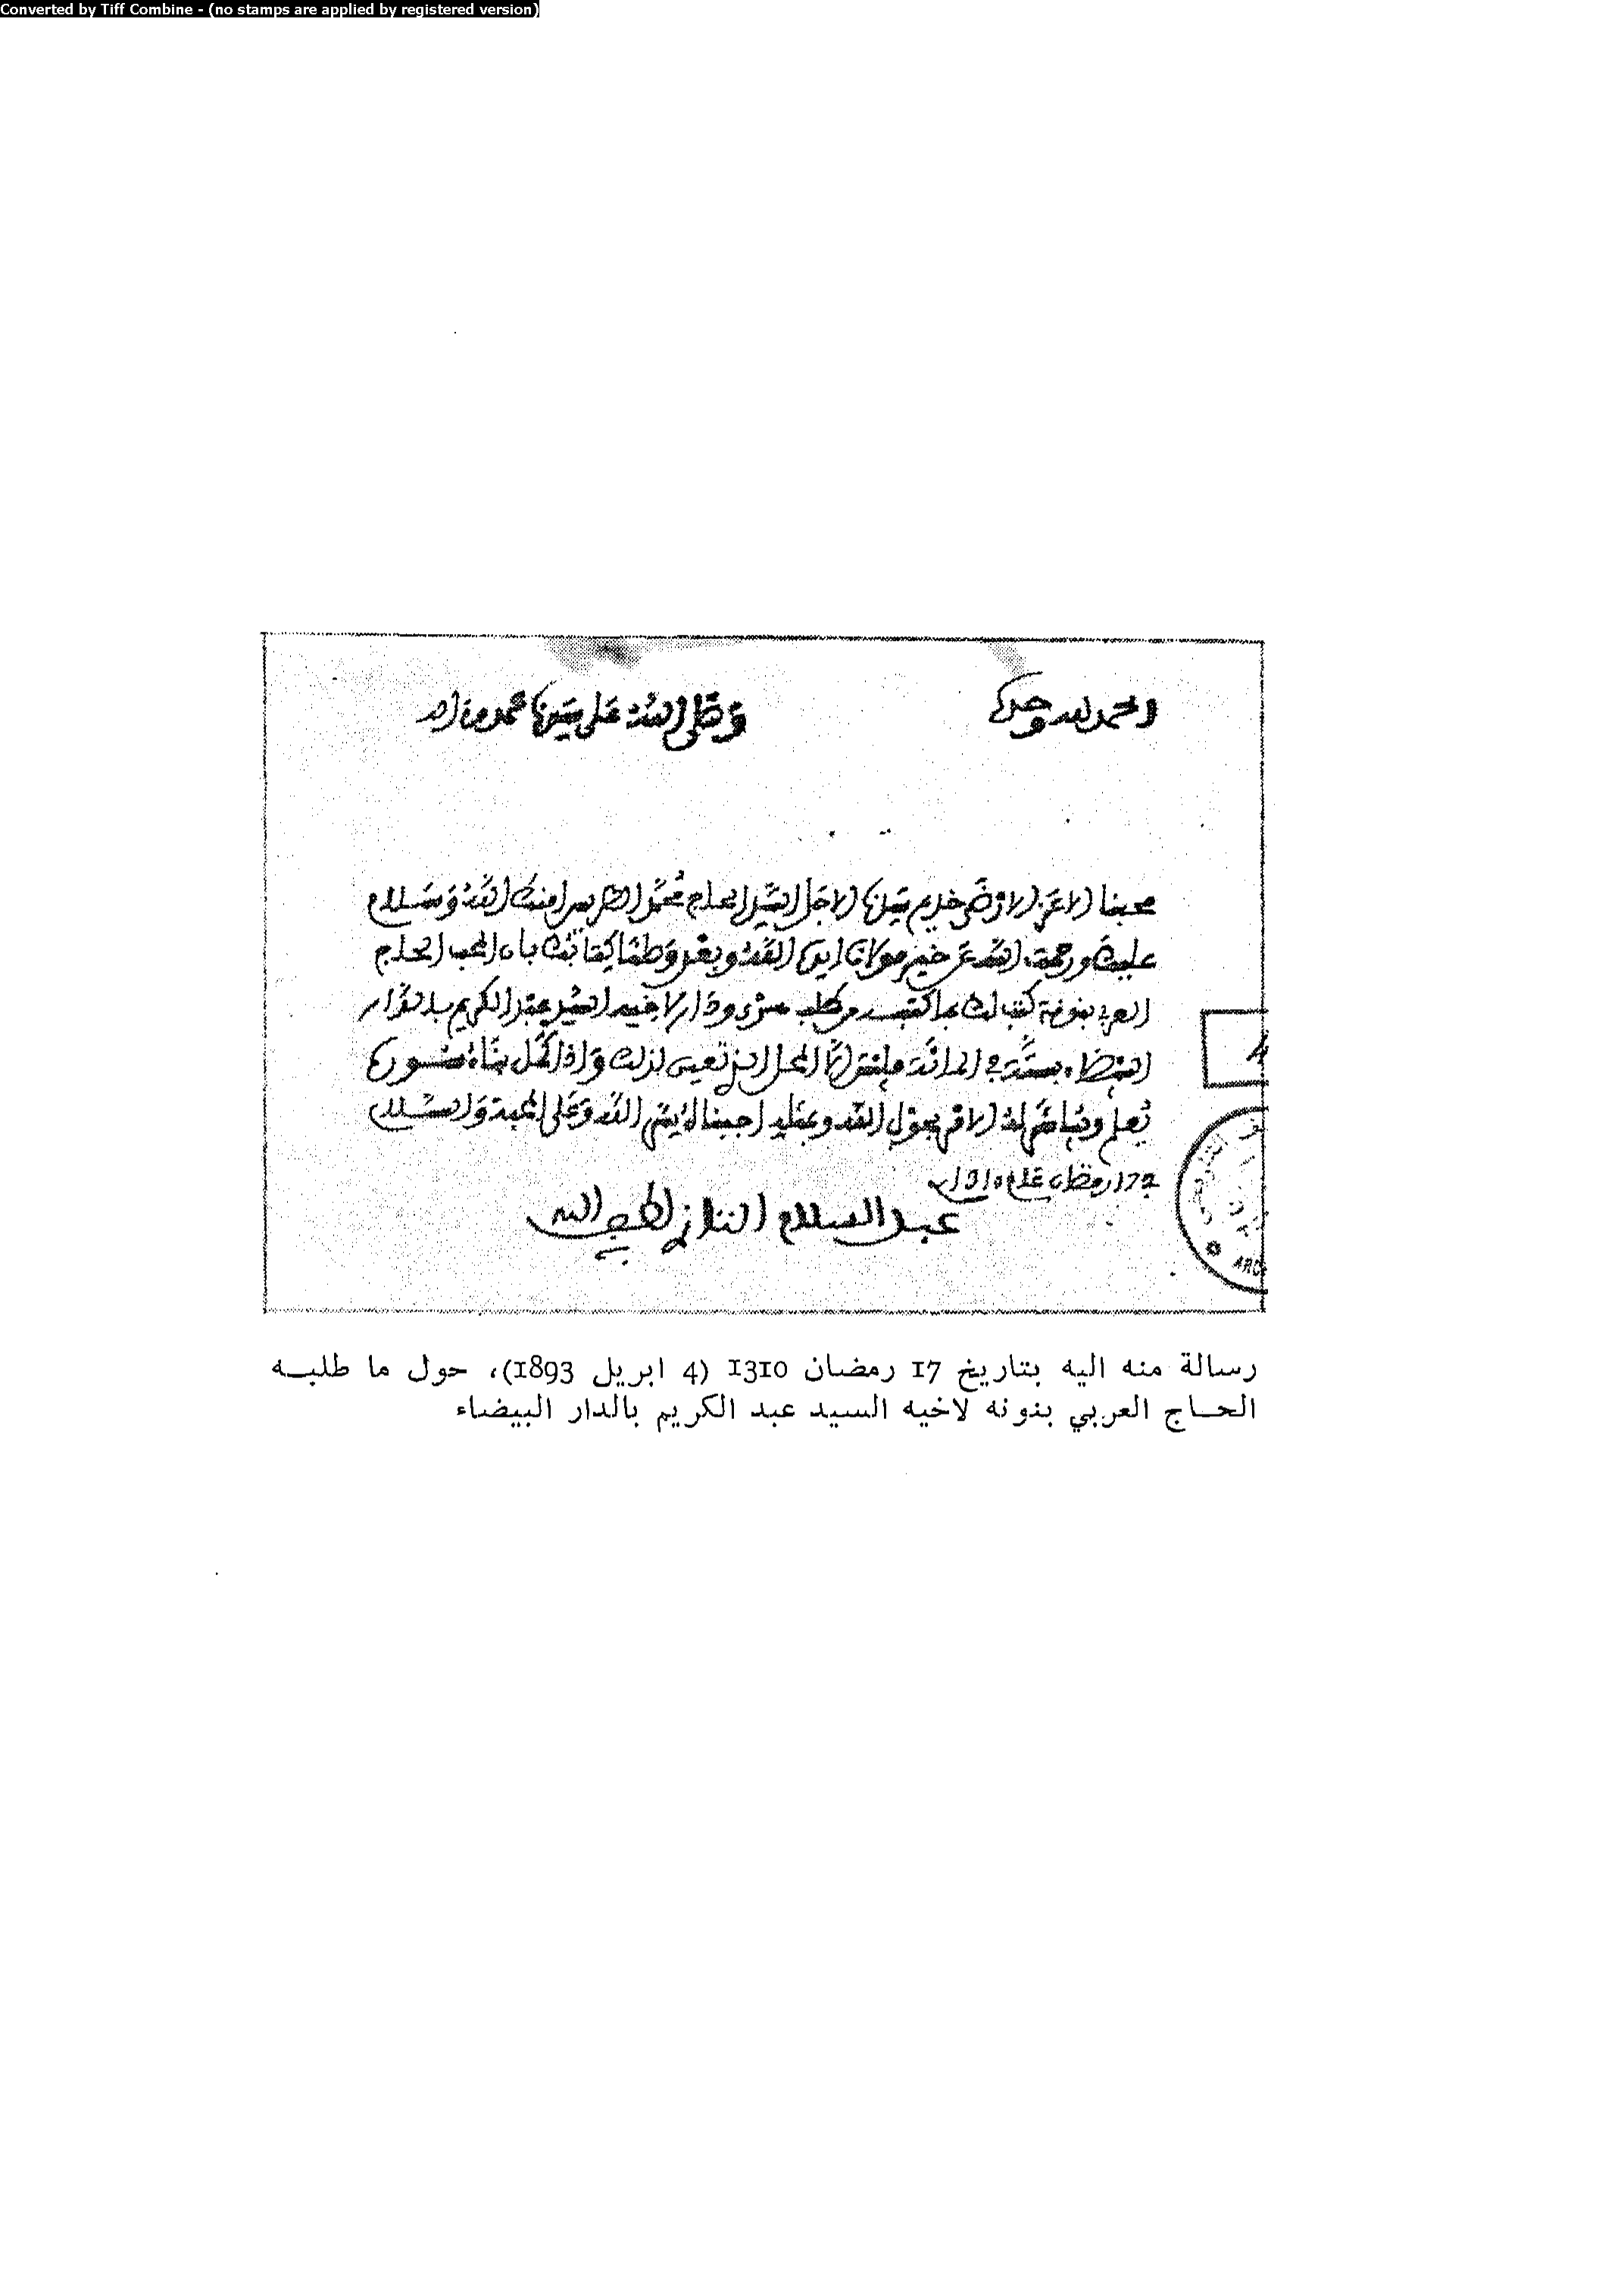 Converted by Tiff Combine - (no stamps are applied by registered version)
الحمد لله وحده
وصلى الله على سيدنا محمد وءاله
محبنا الاعز الارضى خديم سيدنا الاجل السيد الحاج محمد الطريس امنك الله وسلام
عليك ورحمت الله عن خير مولانا ايده الله وبعد وصلنا كتابك بان المحب الحاج
العربي بنونة كتب لك بما كتب من طلب ودار لاخيه السيد عبد الكريم بالدار
البيضاء بستة في المائة المحل الذي تعين لذلك واذا كمل بناء
تعلم لك الامر بحول الله وعليه اجبناك يسر الله وعلى المحبة والسلام
17 رمضان عام 1310
عبد السلام التازي لطف الله به
ARC
رسالة منه اليه بتاريخ 17 رمضان 1310 (4 ابريل 1893)، حول ما طلبـه
الحـاج العربي بنونه لاخيه السيد عبد الكريم بالدار البيضاء